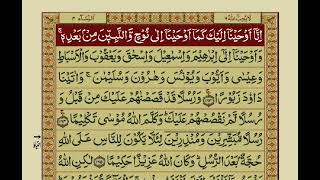 لا يحب الله ٦ النساء ٤
اِنَّاۤ اَوْحَيْنَاۤ اِلَيْكَ كَمَاۤ اَوْحَيْنَاۤ اِلٰى نُوْحٍ وَّالنَّبِيّٖنَ مِنْۢ بَعْدِهٖ ۚ
وَاَوْحَيْنَاۤ اِلٰۤى اِبْرٰهِيْمَ وَاِسْمٰعِيْلَ وَاِسْحٰقَ وَيَعْقُوْبَ وَالْاَسْبَاطِ
وَعِيْسٰى وَاَيُّوْبَ وَيُوْنُسَ وَهٰرُوْنَ وَسُلَيْمٰنَ ۚ وَاٰتَيْنَا
دَاوٗدَ زَبُوْرًا ۚ وَرُسُلًا قَدْ قَصَصْنٰهُمْ عَلَيْكَ مِنْ قَبْلُ
وَرُسُلًا لَّمْ نَقْصُصْهُمْ عَلَيْكَ ؕ وَكَلَّمَ اللّٰهُ مُوْسٰى تَكْلِيْمًا ۚ
رُسُلًا مُّبَشِّرِيْنَ وَمُنْذِرِيْنَ لِئَلَّا يَكُوْنَ لِلنَّاسِ عَلَى اللّٰهِ
حُجَّةٌۢ بَعْدَ الرُّسُلِ ؕ وَكَانَ اللّٰهُ عَزِيْزًا حَكِيْمًا لٰكِنِ اللّٰهُ